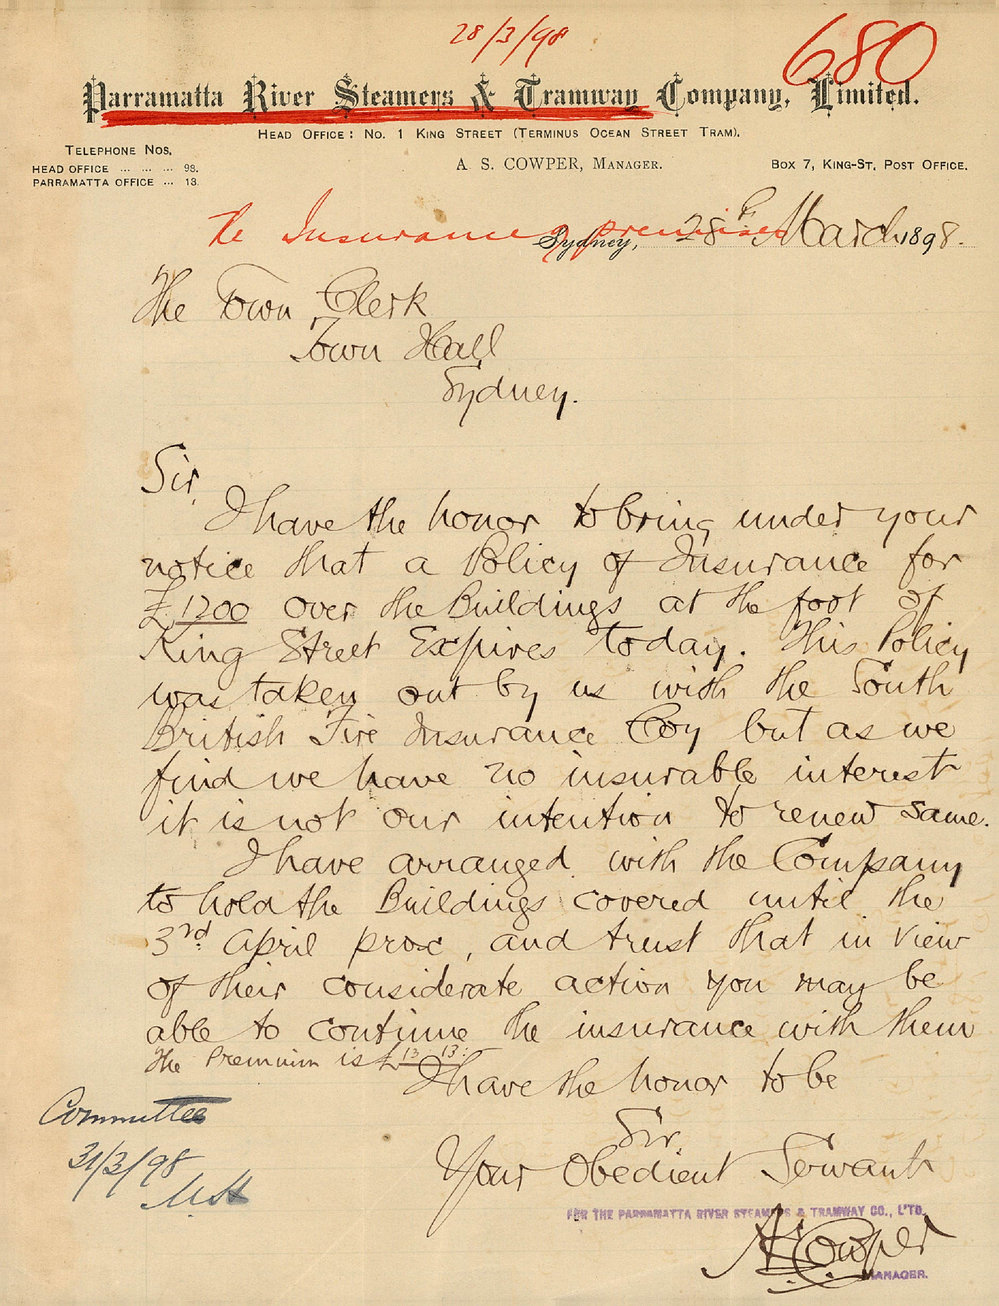 28/3/98
680
Parramatta River Steamers & Tramway Company, Limited.
HEAD OFFICE: No. 1 KING STREET (TERMINUS OCEAN STREET TRAM).
TELEPHONE NOS.
HEAD OFFICE ... ... ... 98.
PARRAMATTA OFFICE ... 13.
A. S. COWPER, MANAGER.
BOX 7, KING-ST, POST OFFICE.
Re Insurance premises
Sydney, 28th March 1898.
The Town Clerk
Town Hall
Sydney.
Sir,
I have the honor to bring under your
notice that a Policy of Insurance for
£1200 over the Buildings at the foot of
King Street Expires today. This Policy
was taken out by us with the South
British Fire Insurance Coy but as we
find we have no insurable interest
it is not our intention to renew same.
I have arranged with the Company
to hold the Buildings covered until the
3rd April prox, and trust that in view
of their considerate action you may be
able to continue the insurance with them
The Premium is £13.13.
I have the honor to be
Sir,
Your Obedient Servant
FOR THE PARRAMATTA RIVER STEAMERS & TRAMWAY CO., L'TD.
A S Cowper
MANAGER.
Committee
31/3/98